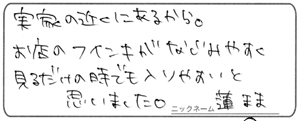 実家の近くにあるから。
お店のフインキがなじみやすく
見るだけの時でも入りやすいと
思いました。
ニックネーム 蓮まま